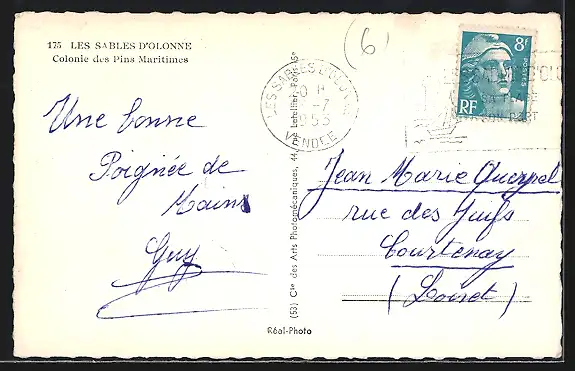 175 LES SABLES D'OLONNE
Colonie des Pins Maritimes
Une bonne
Poignée de
Mains
Guy
(53) Cie des Arts Photomécaniques, 44, rue Letellier, Paris-15e
Réal-Photo
(6)
LES SABLES D'OLONNE
1953
VENDEE
8F
POSTES
RF
SON PORT
Jean Marie Querpel
rue des Juifs
Courtenay
(Loiret)